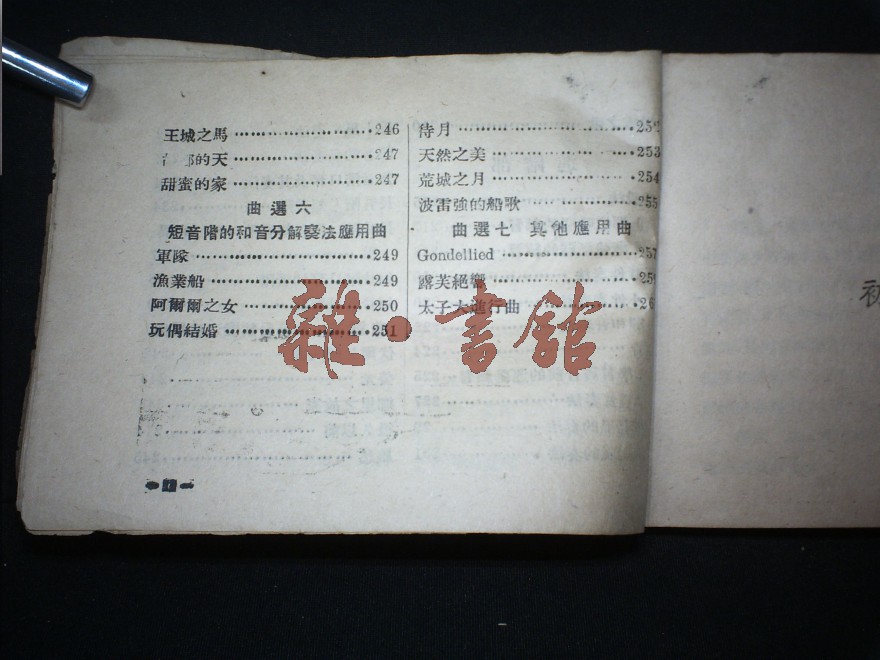 王城之馬 ························246
的天 ························247
甜蜜的家 ························247
曲選六
短音階的和音分解奏法應用曲
軍隊 ························249
漁業船 ························249
阿爾爾之女 ························250
玩偶結婚 ························251
待月 ························252
天然之美 ························253
荒城之月 ························254
波雷強的船歌 ························255
曲選七 其他應用曲
Gondellied ························257
露芙絕響 ························259
太子大進行曲 ························26
雜·書館